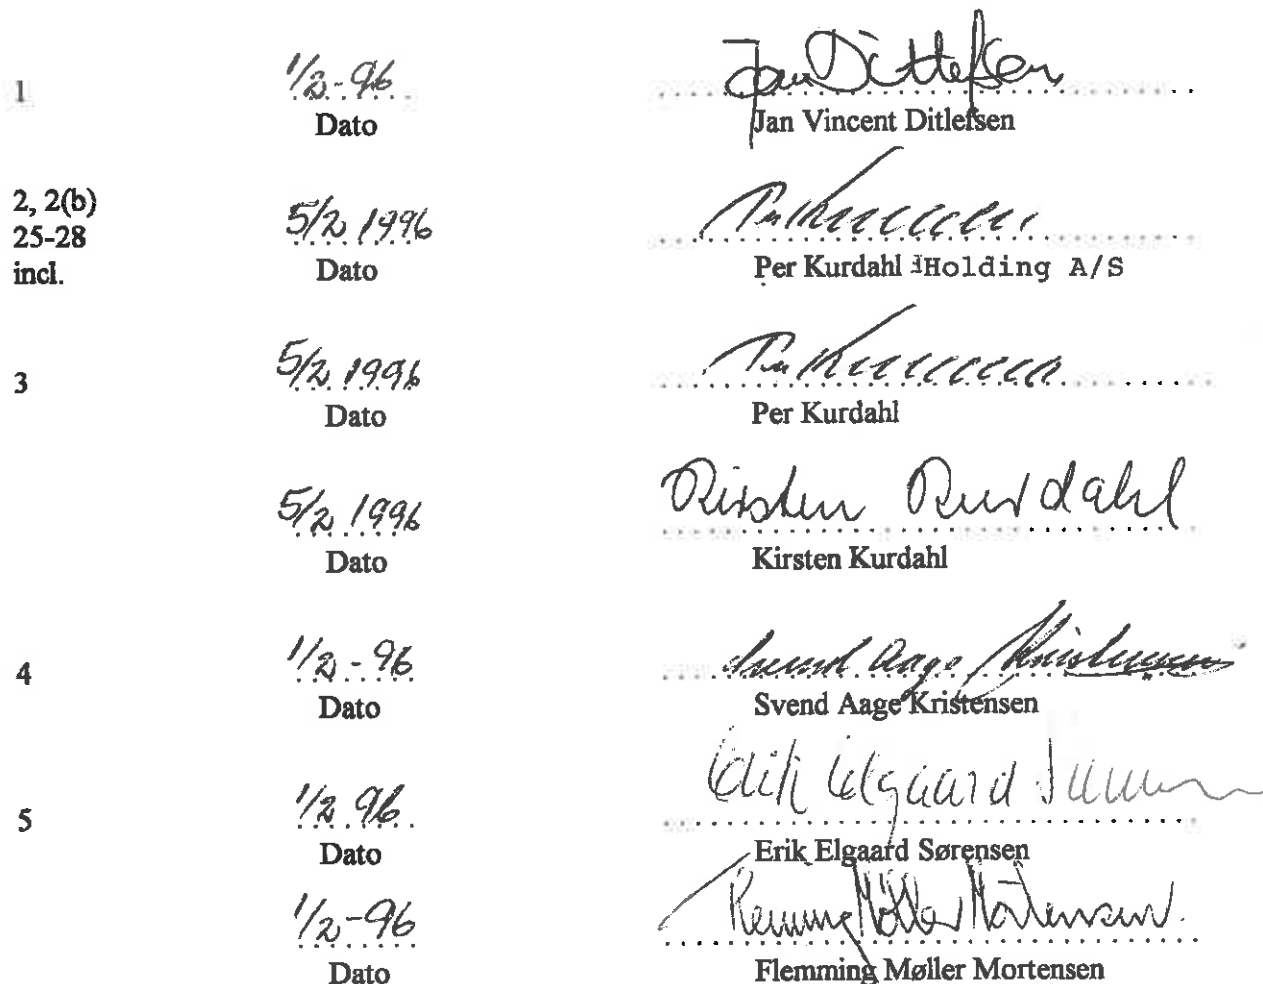 1
1/2-96
Jan Ditlefsen
Dato
Jan Vincent Ditlefsen
2, 2(b)
25-28
incl.
5/2 1996
Per Kurdahl
Dato
Per Kurdahl Holding A/S
3
5/2 1996
Per Kurdahl
Dato
Per Kurdahl
5/2 1996
Kirsten Kurdahl
Dato
Kirsten Kurdahl
4
1/2-96
Svend Aage Kristensen
Dato
Svend Aage Kristensen
5
1/2 96
Erik Elgaard Sørensen
Dato
Erik Elgaard Sørensen
1/2-96
Flemming Møller Mortensen
Dato
Flemming Møller Mortensen